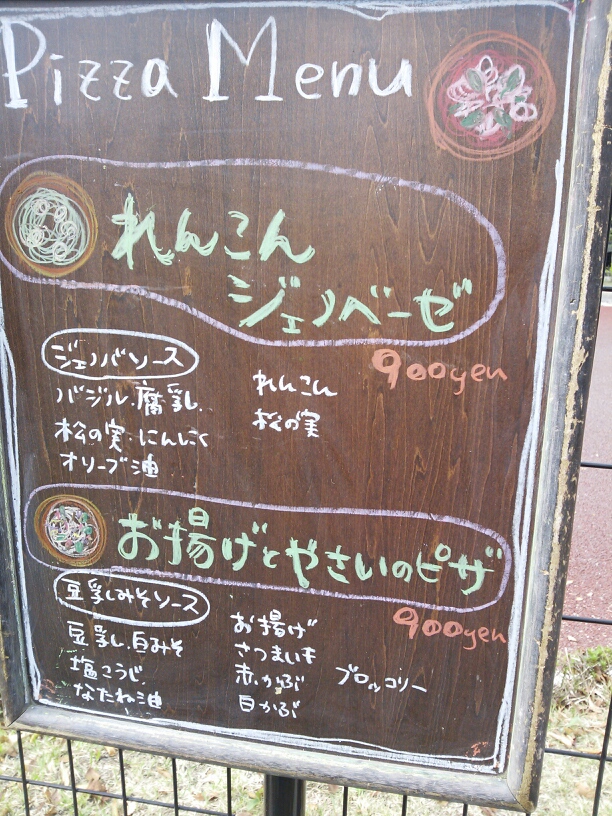 Pizza Menu
れんこん
ジェノベーゼ
900yen
ジェノバソース
バジル・腐乳・
松の実・にんにく
オリーブ油
れんこん
松の実
お揚げとやさいのピザ
900yen
豆乳しみそソース
豆乳し・白みそ
塩こうじ
なたね油
お揚げ
さつまいも
赤かぶ
白かぶ
ブロッコリー